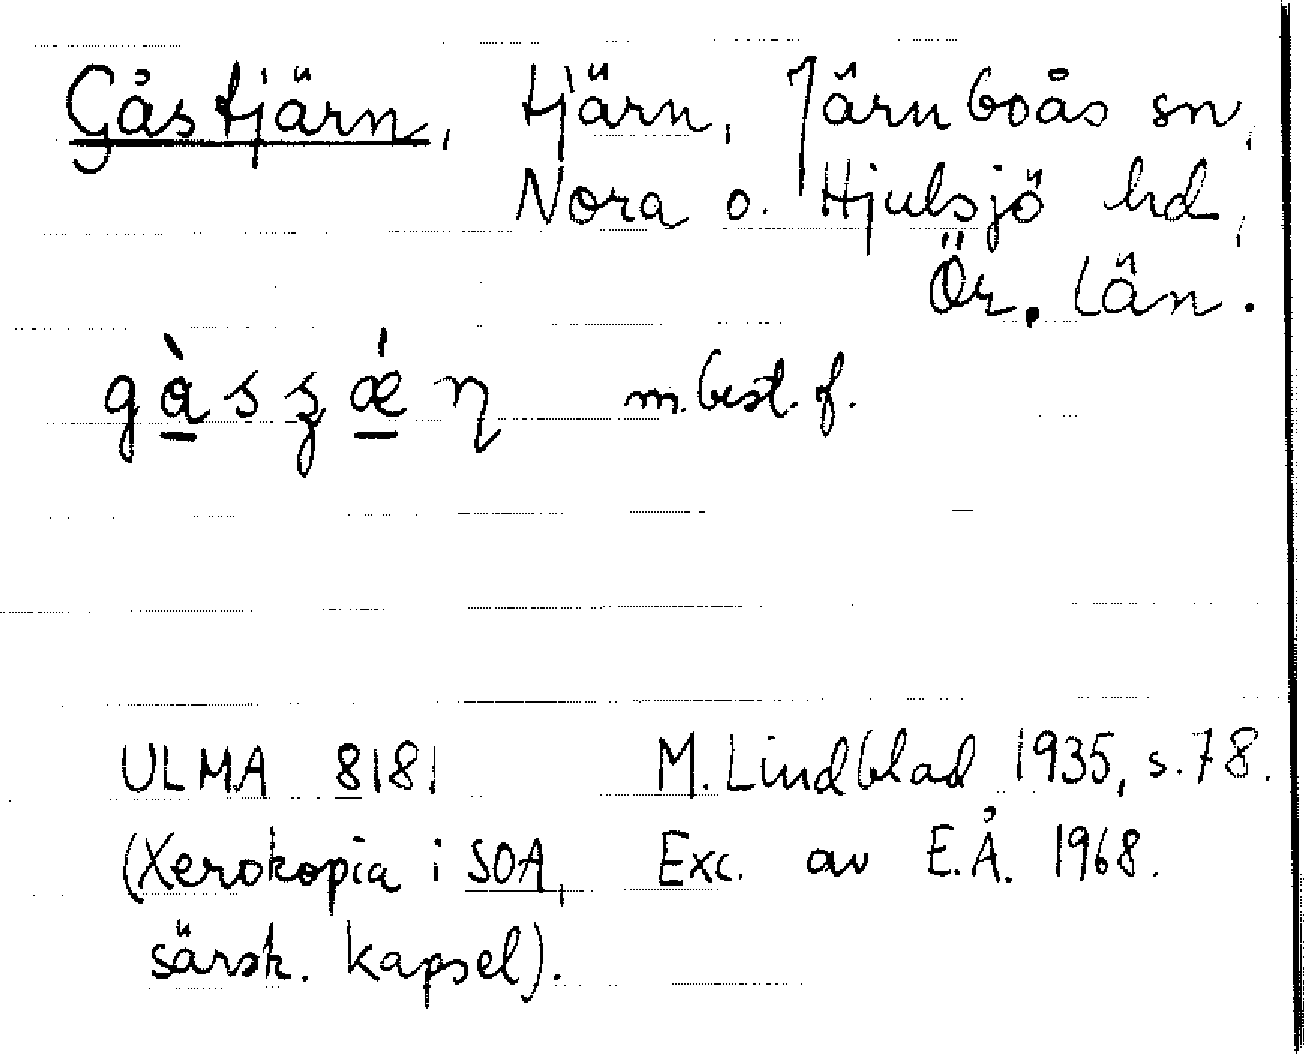 Gåstjärn, tjärn, Järnboås sn,
Nora o. Hjulsjö hd,
Ör. län.
gàsʂǽɳ m. best. f.
ULMA 8181 M. Lindblad 1935, s. 78.
(Xerokopia i SOA, Exc. av E.Å. 1968.
särsk. kapsel).